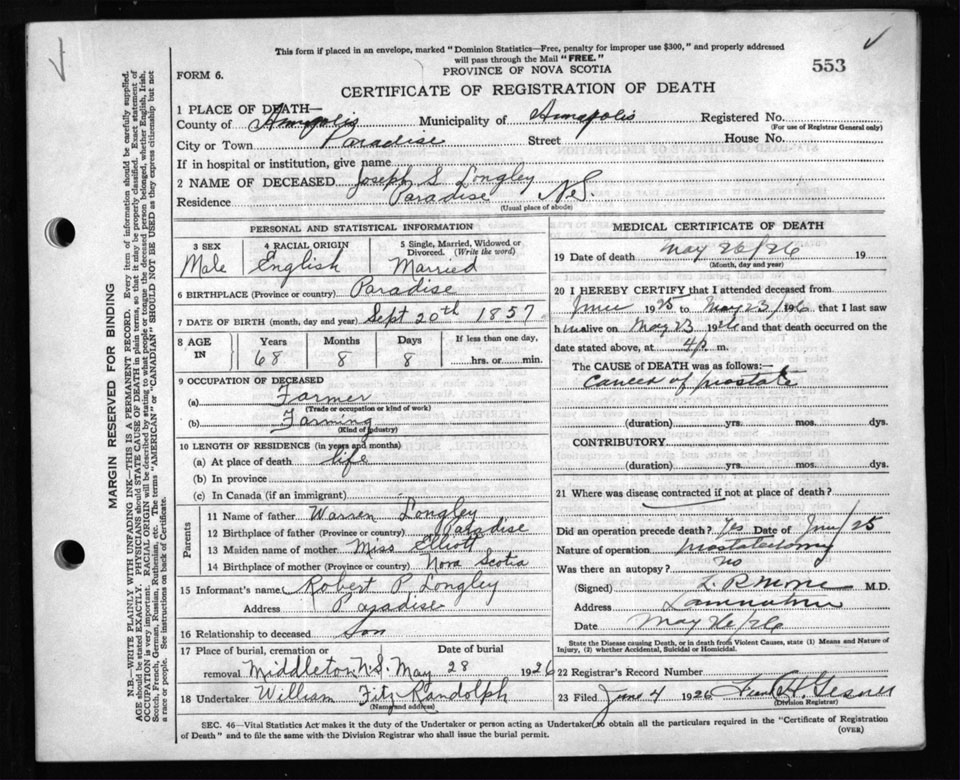 This form if placed in an envelope, marked "Dominion Statistics—Free, penalty for improper use $300," and properly addressed
will pass through the Mail "FREE."
553
FORM 6.
PROVINCE OF NOVA SCOTIA
CERTIFICATE OF REGISTRATION OF DEATH
1 PLACE OF DEATH—
County of Annapolis Municipality of Annapolis Registered No.
(For use of Registrar General only)
City or Town Paradise Street House No.
If in hospital or institution, give name
2 NAME OF DECEASED Joseph S Longley
Residence Paradise N.S.
(Usual place of abode)
PERSONAL AND STATISTICAL INFORMATION
3 SEX 4 RACIAL ORIGIN 5 Single, Married, Widowed or Divorced. (Write the word)
Male English Married
6 BIRTHPLACE (Province or country) Paradise
7 DATE OF BIRTH (month, day and year) Sept 20th 1857
8 AGE IN Years Months Days If less than one day,
68 8 8 ......hrs. or ......min.
9 OCCUPATION OF DECEASED
(a) Farmer
(Trade or occupation or kind of work)
(b) Farming
(Kind of industry)
10 LENGTH OF RESIDENCE (in years and months)
(a) At place of death life
(b) In province
(c) In Canada (if an immigrant)
Parents
11 Name of father Warren Longley
12 Birthplace of father (Province or country) Paradise
13 Maiden name of mother Miss Elliott
14 Birthplace of mother (Province or country) Nova Scotia
15 Informant's name Robert P. Longley
Address Paradise
16 Relationship to deceased Son
17 Place of burial, cremation or removal Date of burial
Middleton N.S. May 28 1926
18 Undertaker William Fitz Randolph
(Name and address)
MEDICAL CERTIFICATE OF DEATH
19 Date of death May 26/26 19
(Month, day and year)
20 I HEREBY CERTIFY that I attended deceased from
June 1925 to May 23/1926 that I last saw
him alive on May 23 1926 and that death occurred on the
date stated above, at 4 p m.
The CAUSE of DEATH was as follows:—
Cancer of prostate
(duration) yrs. mos. dys.
CONTRIBUTORY
(duration) yrs. mos. dys.
21 Where was disease contracted if not at place of death?
Did an operation precede death? Yes Date of June/25
Nature of operation prostatectomy
Was there an autopsy? no
(Signed) L. R. Morse M.D.
Address Lawrencetown
Date May 26/26
State the Disease causing Death, or in death from Violent Causes, state (1) Means and Nature of
Injury, (2) whether Accidental, Suicidal or Homicidal.
22 Registrar's Record Number
23 Filed June 4 1926 Gesner
(Division Registrar)
SEC. 46—Vital Statistics Act makes it the duty of the Undertaker or person acting as Undertaker to obtain all the particulars required in the "Certificate of Registration
of Death" and to file the same with the Division Registrar who shall issue the burial permit.
(OVER)
MARGIN RESERVED FOR BINDING
N.B.—WRITE PLAINLY WITH UNFADING INK—THIS IS A PERMANENT RECORD. Every item of information should be carefully supplied.
AGE should be stated EXACTLY. PHYSICIANS should STATE CAUSE OF DEATH in plain terms, so that it may be properly classified. Exact statement of
OCCUPATION is very important. RACIAL ORIGIN will be described by stating to what people or tongue the deceased person belonged, whether English, Irish,
Scotch, French, German, Russian, Ruthenian, etc. The terms "AMERICAN" or "CANADIAN" SHOULD NOT BE USED as they express citizenship but not
a race or people. See instructions on back of Certificate.